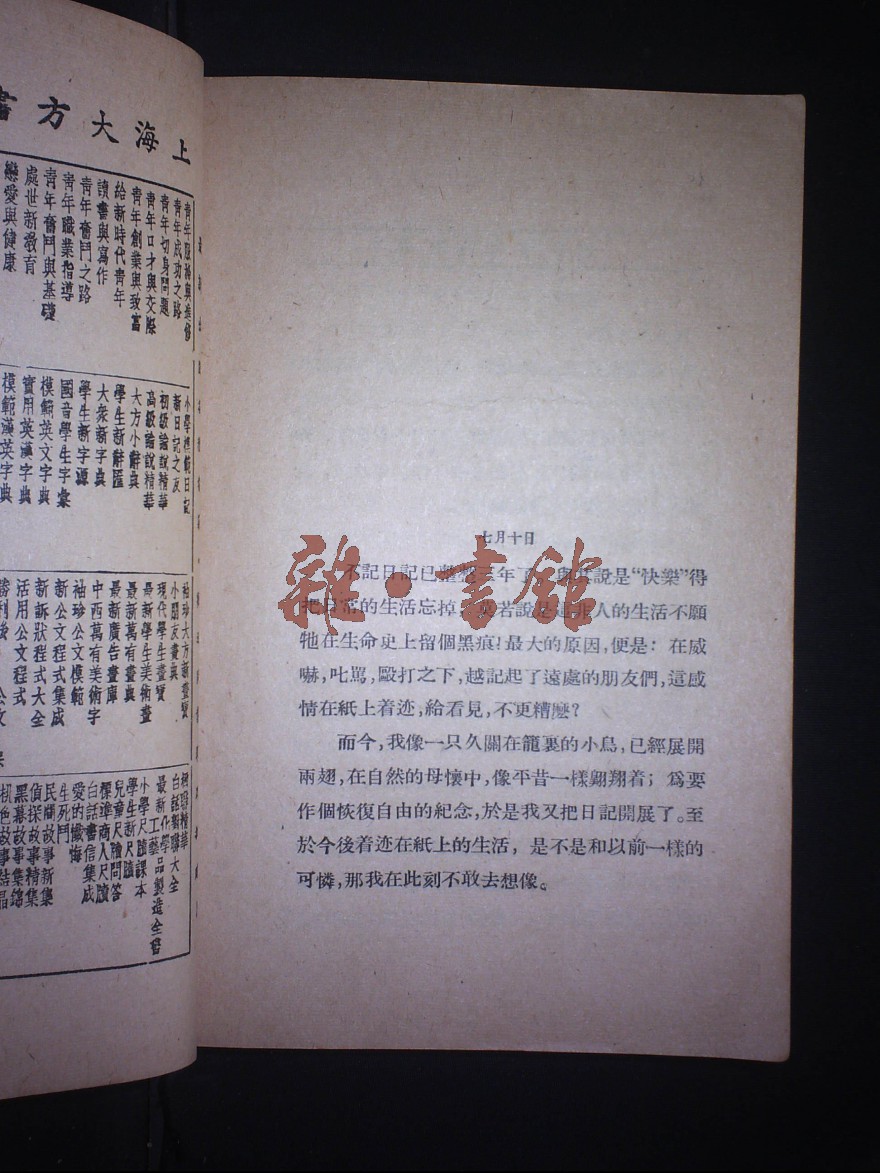 上海大方書
青年成功之路
青年切身問題
青年口才與交際
青年創業與致富
給新時代青年
讀書與寫作
青年奮鬥之路
青年職業指導
青年奮鬥與基礎
處世新教育
戀愛與健康
小學模範日記
新日記之友
初級論說精華
高級論說精華
大方小辭典
學生新辭匯
大衆新字典
學生新字源
國音學生字彙
模範英文字典
實用英漢字典
模範漢英字典
袖珍大方新畫寶
小朋友畫典
現代學生畫寶
最新學生美術畫
最新萬有畫典
最新廣告畫庫
中西萬有美術字
袖珍公文模範
新公文程式集成
新訴狀程式大全
活用公文程式
白話新聯大全
最新化學工藝品製造全書
小學尺牘課本
學生新尺牘
兒童尺牘問答
標準商人尺牘
白話書信集成
愛的懺悔
生死鬥
民間故事新集
偵探故事精集
黑幕故事集錦
桃色故事結晶
七月十日
不記日記已整整三年了，與其說是“快樂”得
把日常的生活忘掉，莫若說是這非人的生活不願
牠在生命史上留個黑痕！最大的原因，便是：在威
嚇，叱罵，毆打之下，越記起了遠處的朋友們，這感
情在紙上着迹，給看見，不更糟麼？
而今，我像一只久關在籠裏的小鳥，已經展開
兩翅，在自然的母懷中，像平昔一樣翱翔着；爲要
作個恢復自由的紀念，於是我又把日記開展了。至
於今後着迹在紙上的生活，是不是和以前一樣的
可憐，那我在此刻不敢去想像。
雜·書館